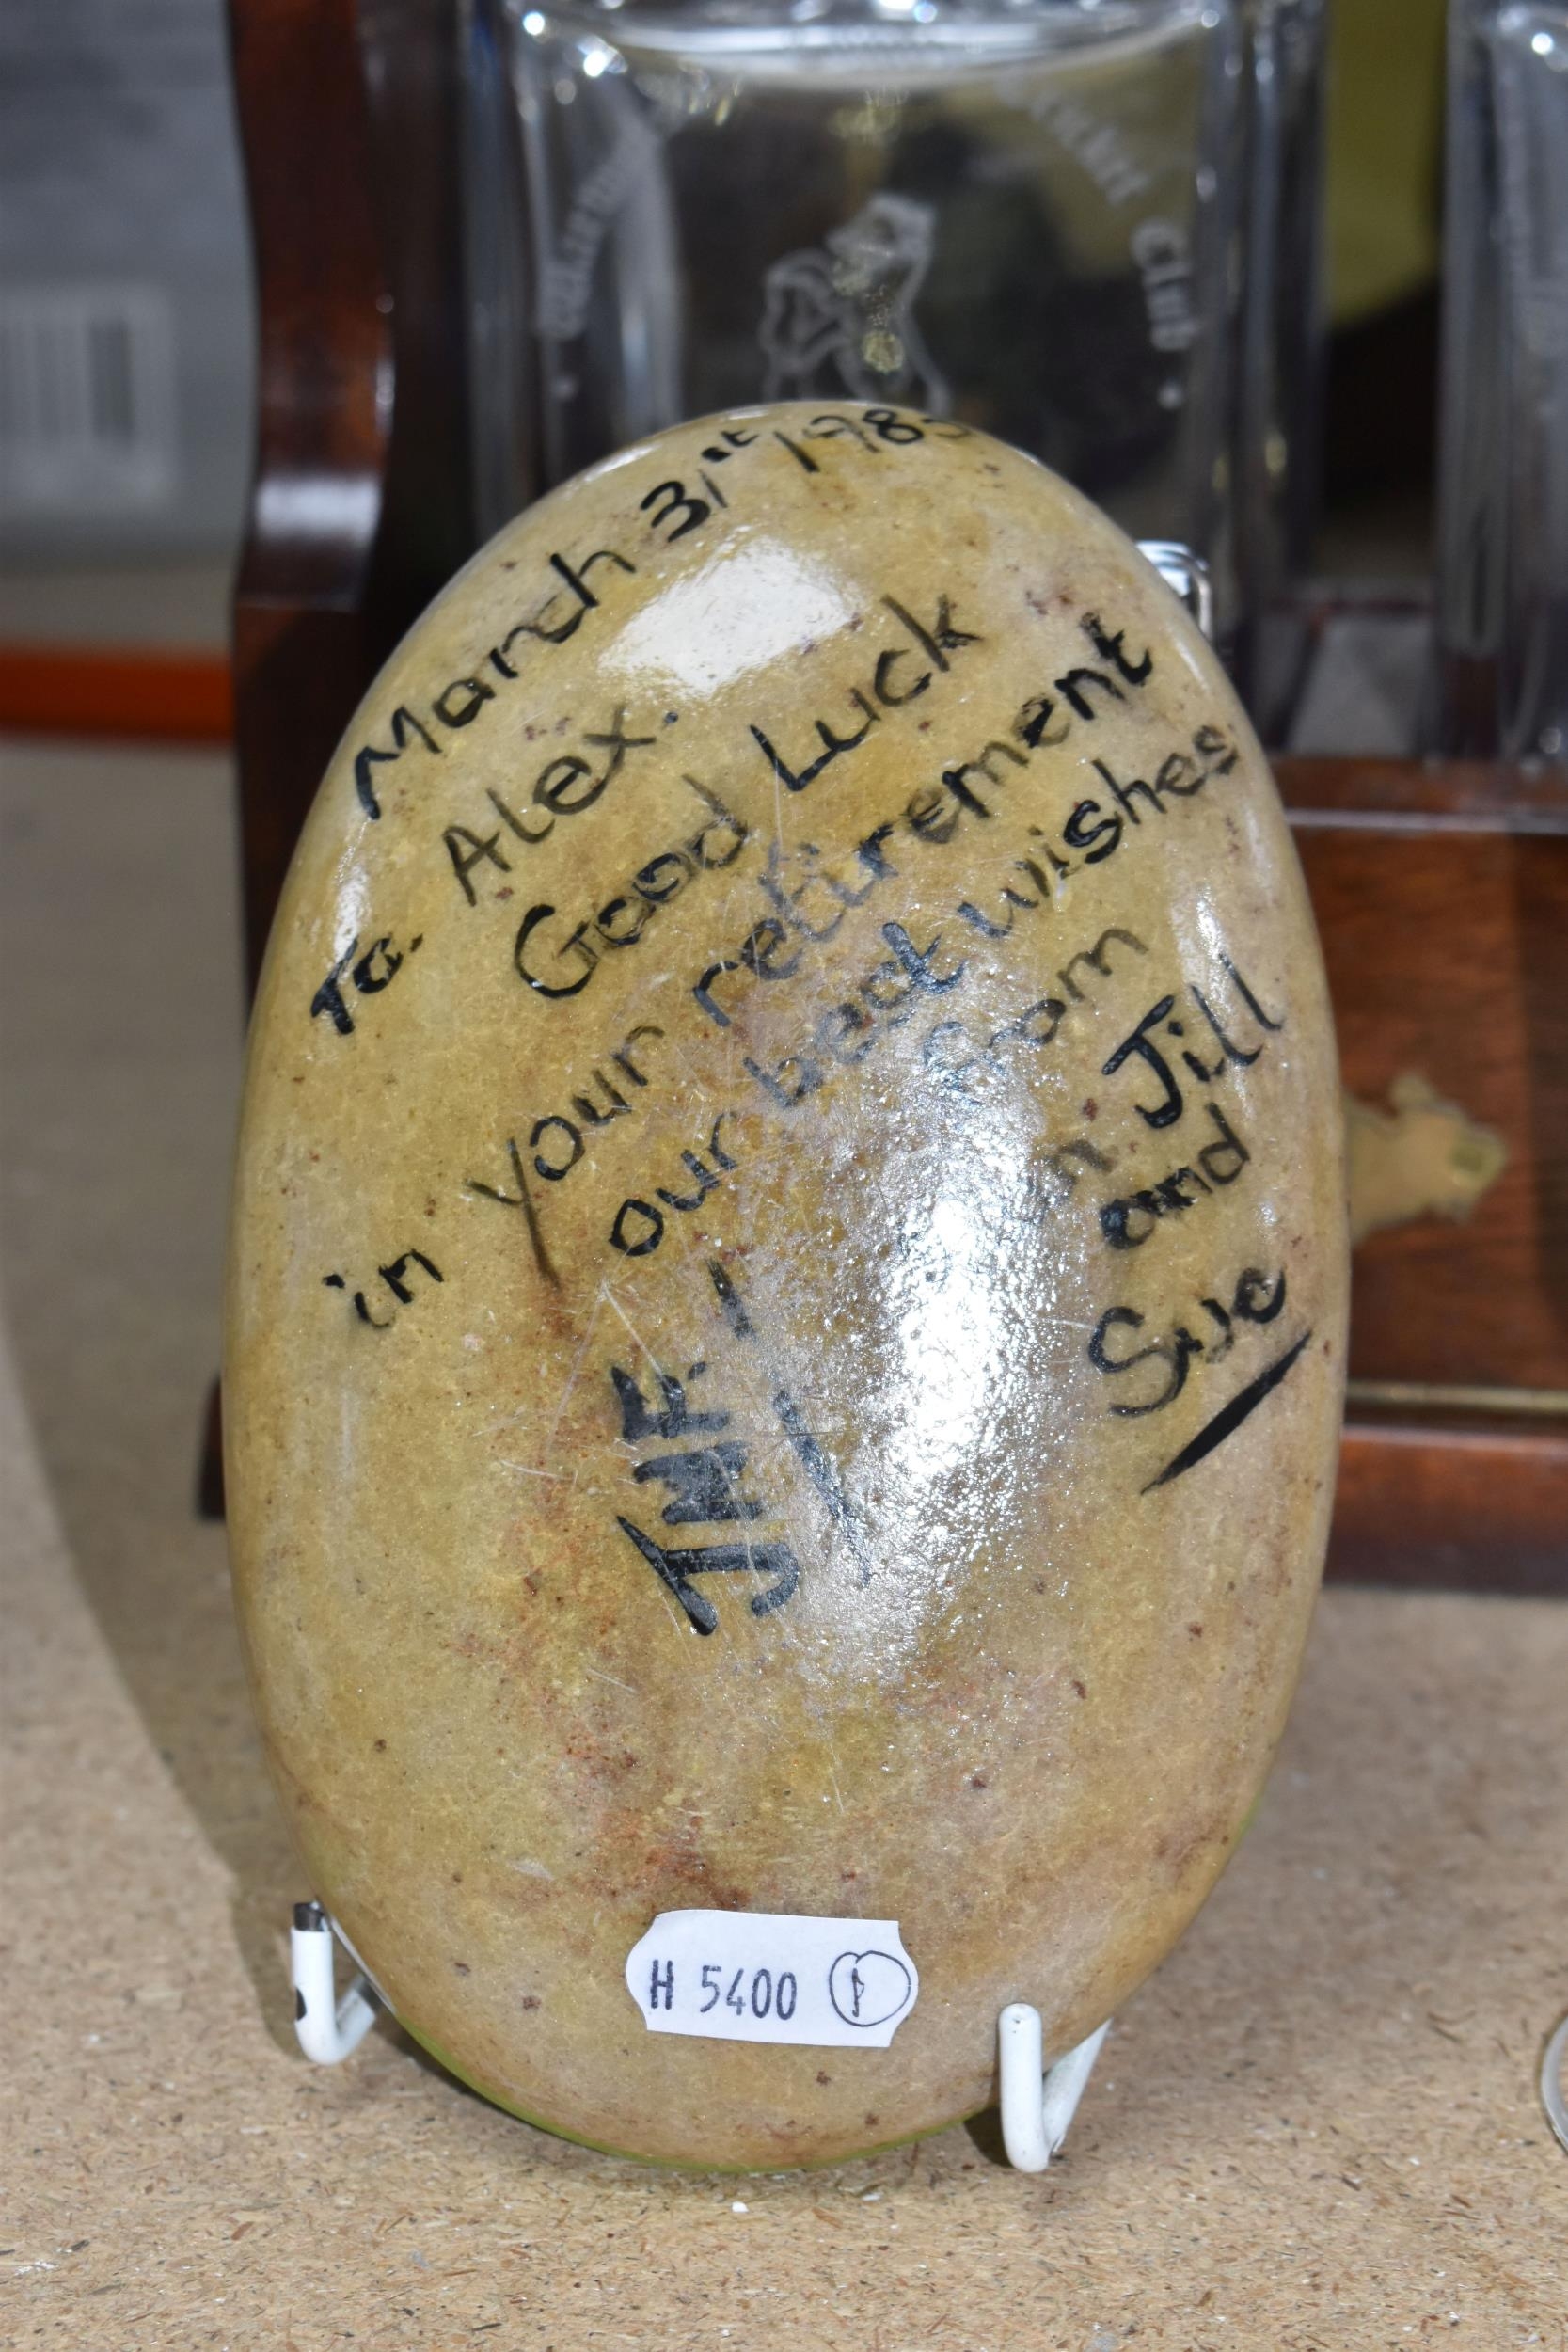 March 31st 1985
To. Alex.
Good Luck
in your retirement
our best wishes
from
Jill
and
Sue
JMF.
H 5400 P
Cricket Club